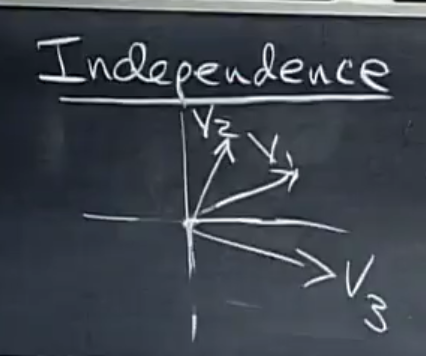 Independence
V2
V1
V3